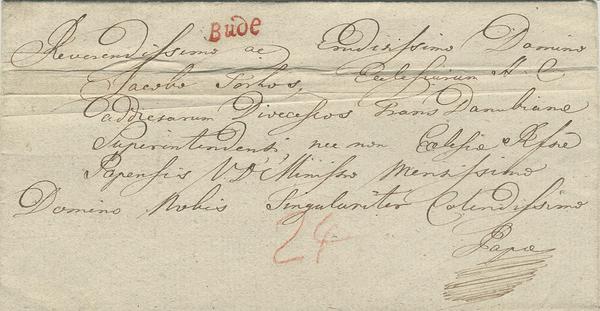 Bude
Reverendissimo ac Erudissimo Domino
Jacobo Torkos, Ecclesiarum H. C.
addictarum Dioeceseos Trans Danubianae
Superintendenti nec non Eclesiæ
Papensis V. D. Ministro Meritissimo
Domino Nobis Singulariter Colendissimo
24
Papæ